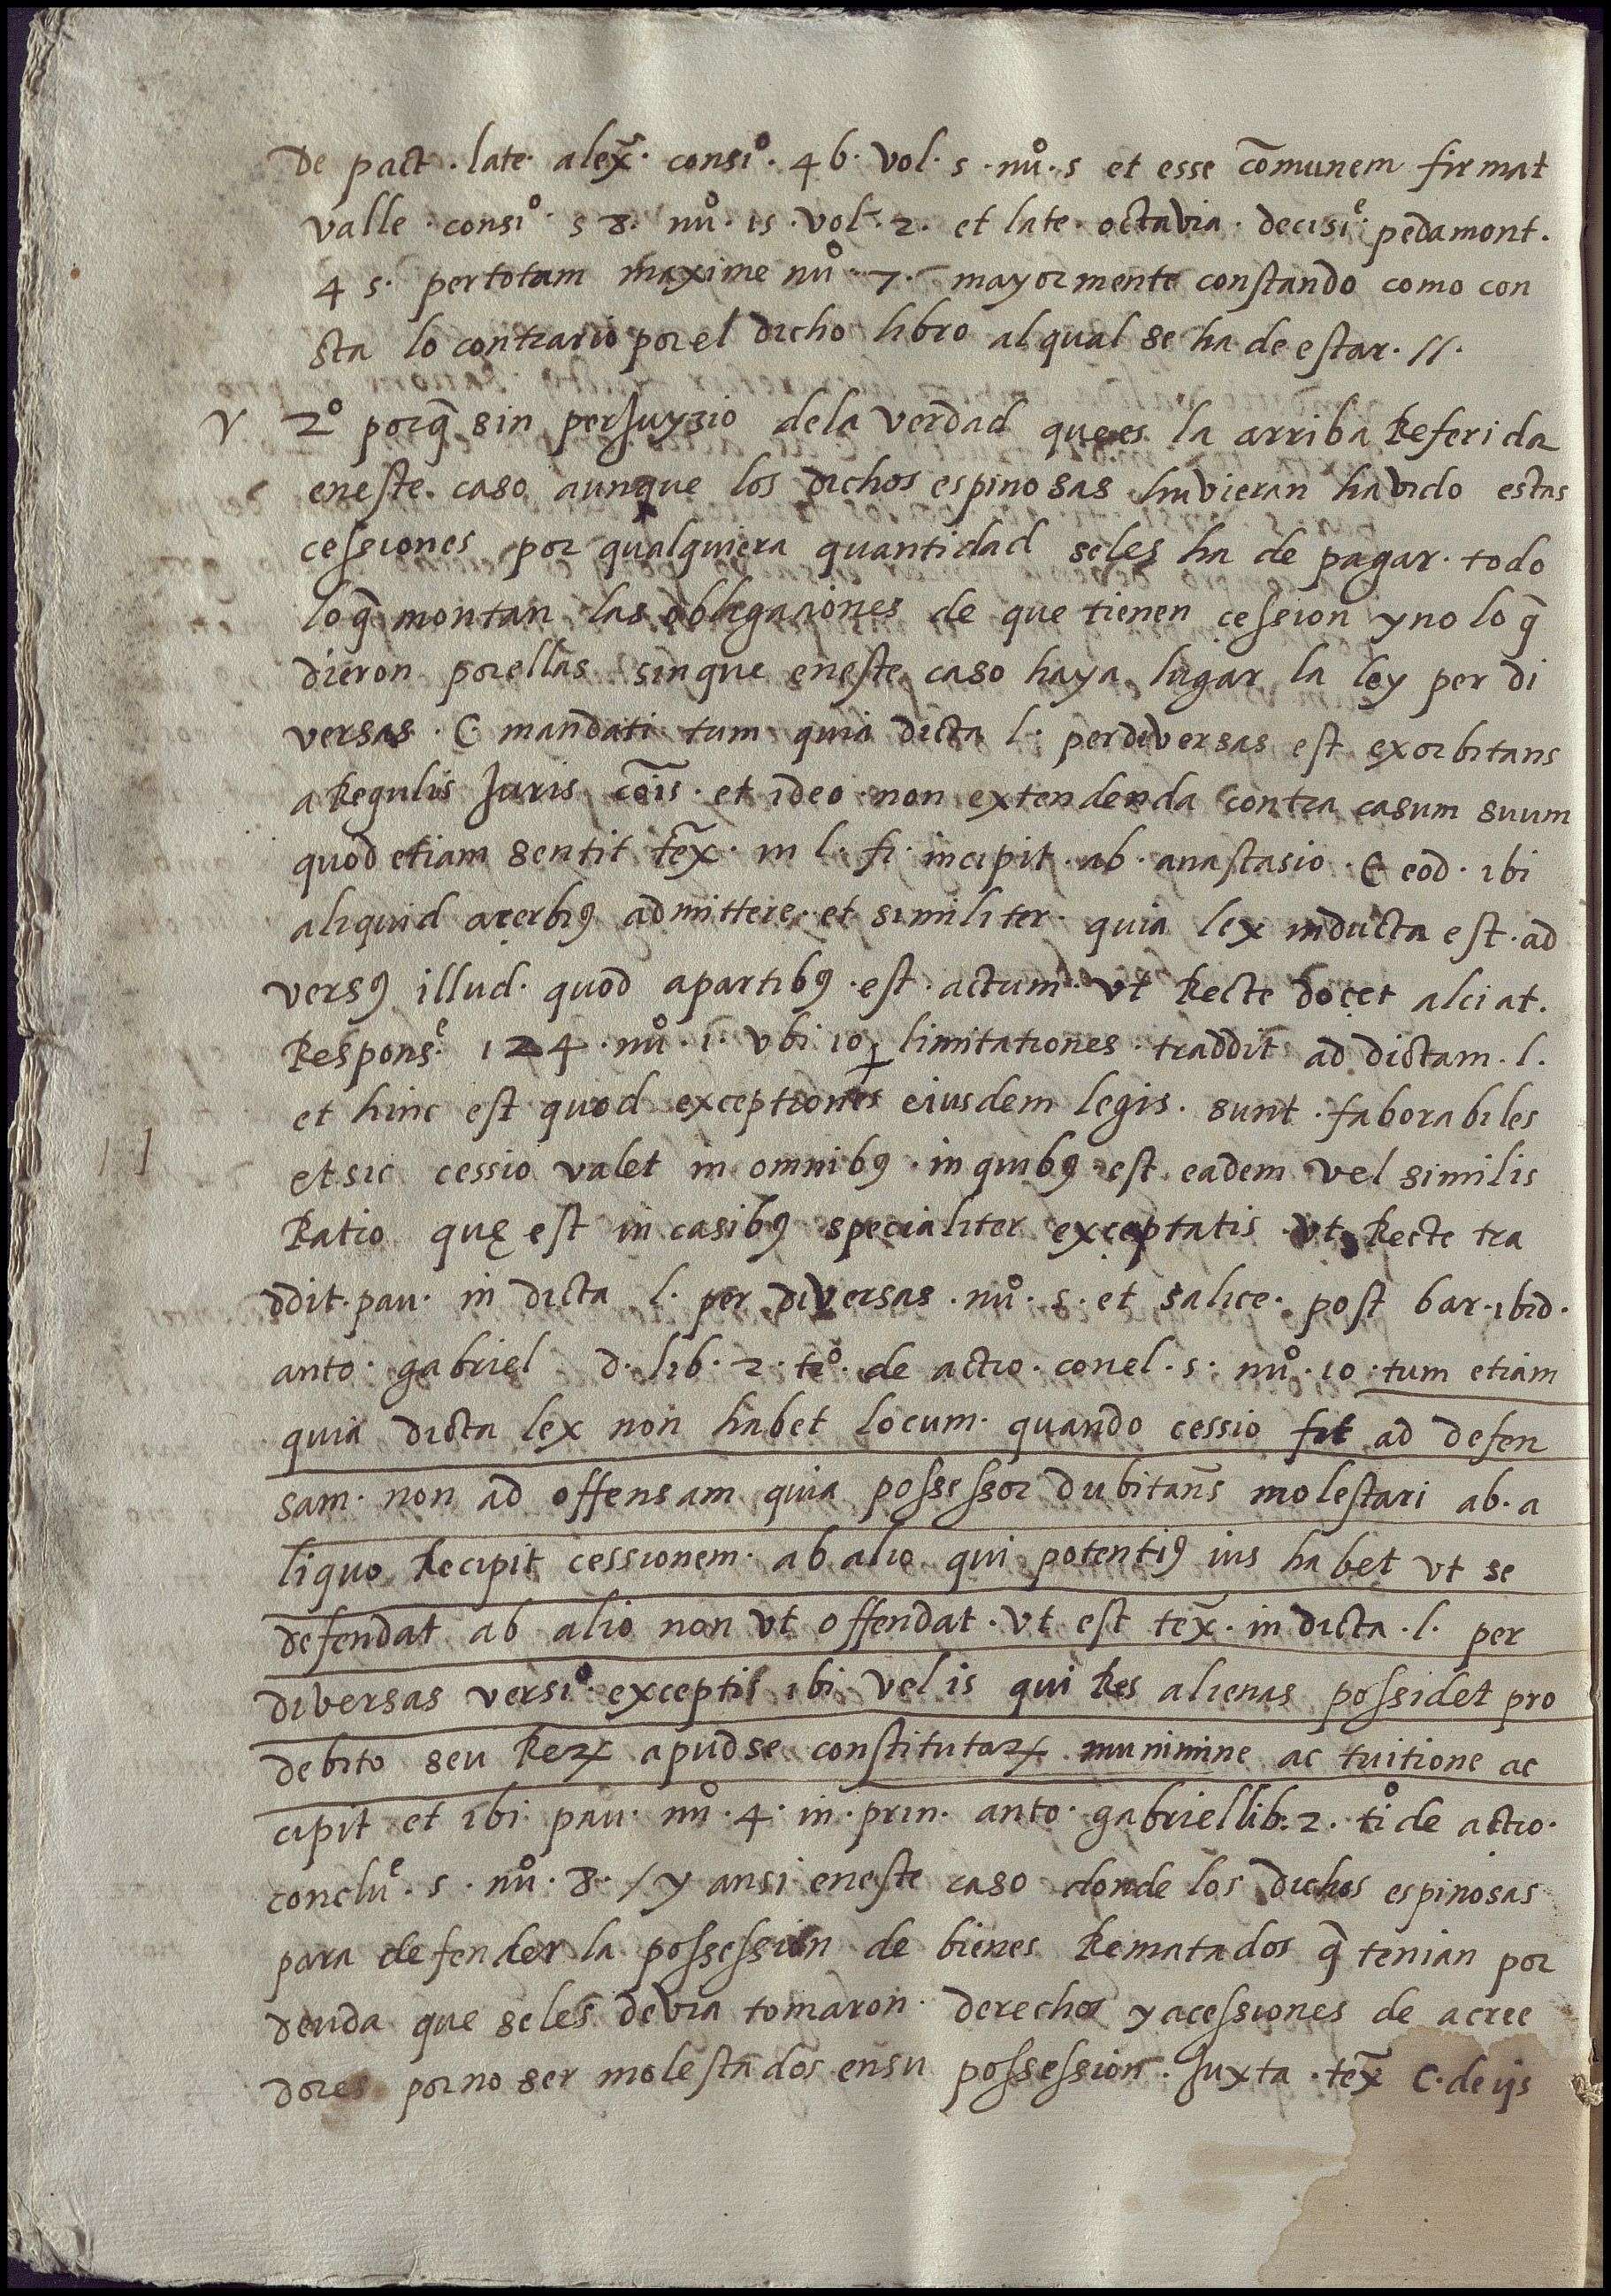 De pact. late. alex̃. consi.º 46. vol. 5. nuº. 5 et esse cõmunem firmat
valle. consi.º 58. nuº. 15. vol. 2. et late. octavia. decisi.e pedamont.
45. per totam maxime nuº 7. mayormente constando como con
sta lo contrario por el dicho libro al qual se ha de estar. //.
γ 2º porq̃ sin persuyzio de la verdad que es la arriba Referida
en este. caso aunque los dichos espinosas huvieran havido estas
cessiones por qualquiera quantidad se les ha de pagar. todo
lo q̃ montan las obligaciones de que tienen cession y no lo q̃
dieron por ellas sin que en este caso haya lugar la ley per di
versas. C. mandati tum quia dicta l. per diversas est exorbitans
a Regulis Juris cõis. et ideo non extendenda contra casum suum
quod etiam sentit tex̃. in l. fi. incipit. ab. anastasio. C. eod. ibi
aliquid acerbiꝰ admittere. et similiter. quia lex inducta est. ad
versꝰ illud. quod a partibꝰ. est. actum. vt Recte docet alciat.
Respons.e 124. nuº. 1. vbi 10. limitationes. traddit ad dictam. l.
et hinc est quod exceptiones eiusdem legis. sunt. faborabiles
et sic cessio valet in omnibꝰ. in quibꝰ est eadem vel similis
Ratio quę est in casibꝰ specialiter exceptatis vt Recte tra
ddit. pau. in dicta l. per diversas. nuº. 5. et salice. post bar. ibid.
anto. gabriel D. lib. 2. tº. de actio. conel. 5. nuº. 10. tum etiam
quia dicta lex non habet locum. quando cessio fit ad defen
sam. non ad offensam quia possessor dubitañs molestari ab. a
liquo Recipit cessionem. ab alio qui potentiꝰ ius habet vt se
defendat ab alio non vt offendat. vt est tex̃. in dicta. l. per
diversas versi.º exceptis ibi vel is qui Res alienas possidet pro
debito seu Reꝝ apud se constitutaꝝ munimine ac tuitione ac
cipit et ibi pau. nuº. 4. in. prin. anto. gabriel lib. 2. tiº de actio.
conclu.e 5. nuº. 8. / y ansi en este caso donde los dichos espinosas
para defender la possession de bienes Rematados q̃ tenian por
deuda que se les devia tomaron. derechos y acessiones de acree
dores por no ser molestados en su possession. Juxta. tex̃ C. de ijs